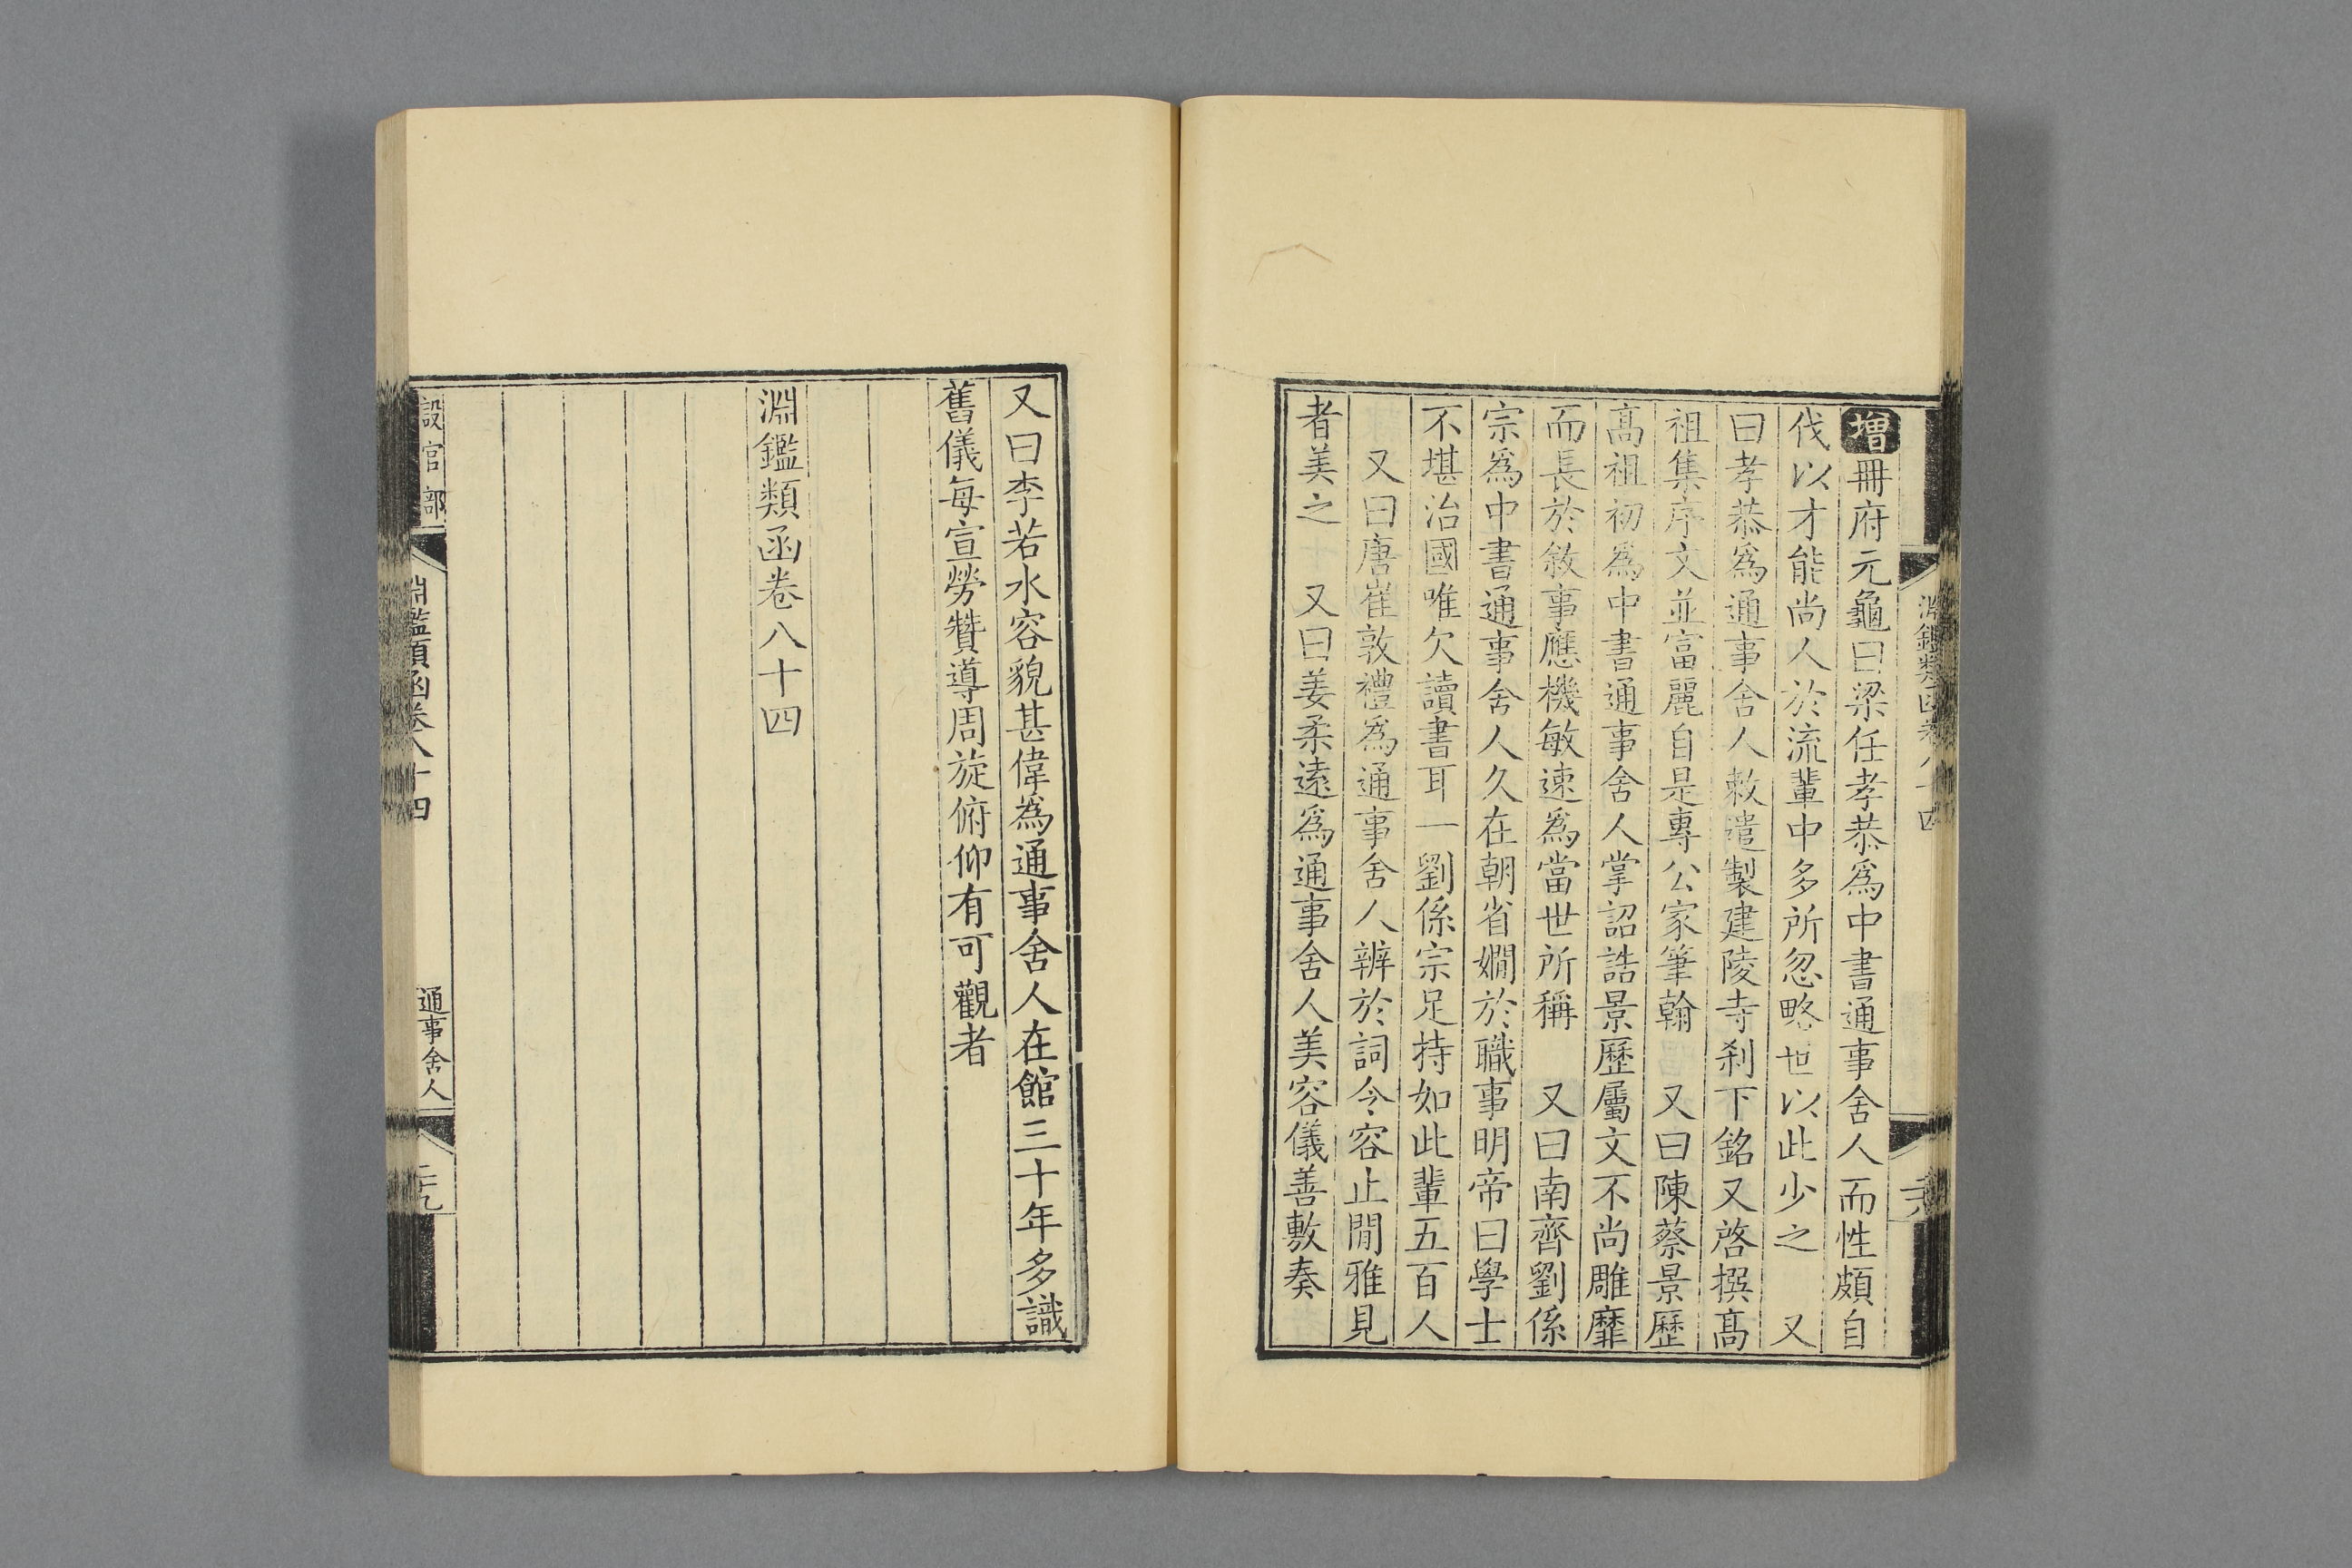 增冊府元龜曰梁任孝恭爲中書通事舍人而性頗自
伐以才能尚人於流輩中多所忽略世以此少之　又
曰孝恭爲通事舍人敕遣製建陵寺刹下銘又啓撰髙
祖集序文並富麗自是專公家筆翰　又曰陳蔡景歷
髙祖初爲中書通事舍人掌詔誥景歷屬文不尚雕靡
而長於敘事應機敏速爲當世所稱　又曰南齊劉係
宗爲中書通事舍人久在朝省嫺於職事明帝曰學士
不堪治國唯欠讀書耳一劉係宗足持如此輩五百人
　又曰唐崔敦禮爲通事舍人辨於詞令容止閒雅見
者美之　又曰姜柔遠爲通事舍人美容儀善敷奏
淵鑑類函卷八十四
又曰李若水容貌甚偉爲通事舍人在館三十年多識
舊儀每宣勞贊導周旋俯仰有可觀者
淵鑑類函卷八十四
設官部
淵鑑類函卷八十四
通事舍人
二十九